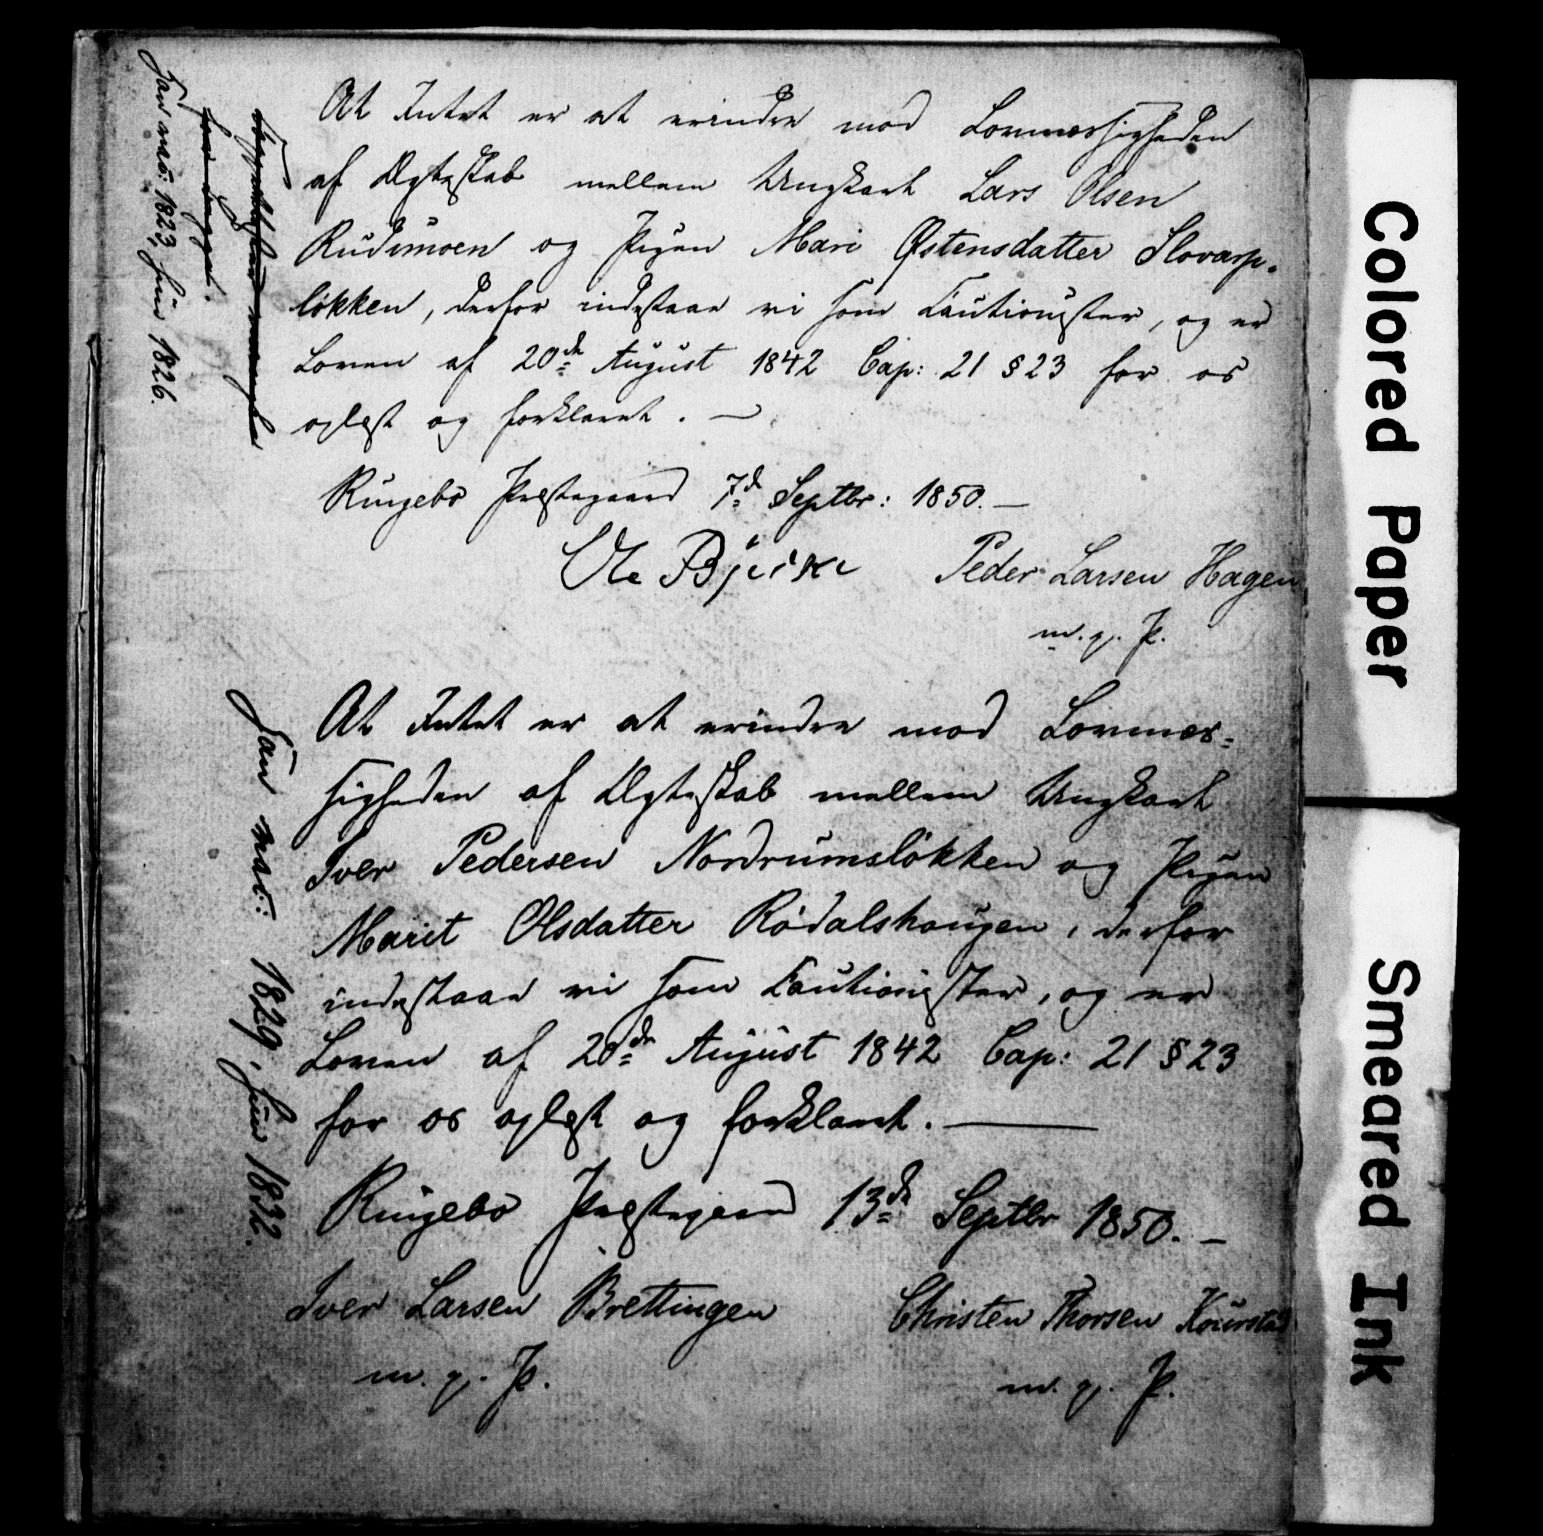 At Intet er at erindre mod Lovmæssigheden
af Ægteskab mellem Ungkarl Lars Olsen
Rudimoen og Pigen Mari Østensdatter Slovarp-
løkken, derfor indestaae vi som Cautionister, og er
Loven af 20de August 1842 Cap: 21 § 23 for os
oplæst og forklaret. —
Ringebo Præstegaard 7de Septbr: 1850. —
Ole Peder Larsen Hagen
m. p. P.
Han vac: 1823, hun 1826.
At Intet er at erindre mod Lovmæs-
sigheden af Ægteskab mellem Ungkarl
Iver Pedersen Nordrumsløkken og Pigen
Marit Olsdatter Rødalshaugen, derfor
indestaae vi som Cautionister, og er
Loven af 20de August 1842 Cap: 21 § 23
for os oplæst og forklaret. —
Ringebo Præstegaard 13de Septbr 1850. —
Iver Larsen Brettingen Christen Thorsen
m. p. P. m. p. P.
Han vac: 1829, hun 1832.
Colored Paper
Smeared Ink